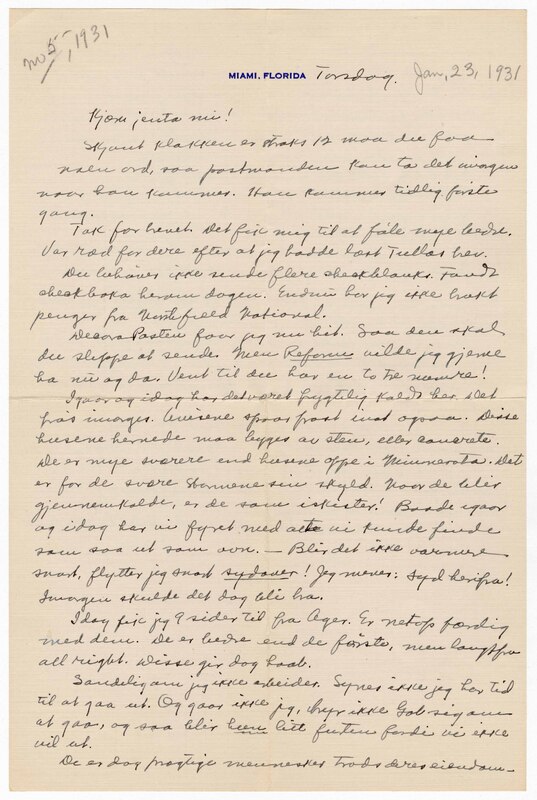 no 5, 1931
MIAMI, FLORIDA Torsdag. Jan, 23, 1931
Kjære jenta mi!
Skjønt klokken er straks 12 maa du faa
noen ord, saa postmanden kan ta det imorgen
naar han kommer. Han kommer tidlig første
gang.
Tak for brevet. Det fik mig til at føle mye bedre.
Var ræd for dere efter at jeg hadde læst Tullas brev.
Du behøver ikke sende flere checkblanks. Fandt
checkboka herom dagen. Endnu har jeg ikke brukt
penger fra Northfield National.
Decorah Posten faar jeg nu hit. Saa den skal
du slippe at sende. Men Reform vilde jeg gjerne
ha nu og da. Vent til du har en to tre numre!
Igaar og idag har det været frygtelig koldt her. Det
frøs imorges. Aviserne spaar frost inat ogsaa. Disse
husene hernede maa bygges av sten, eller concrete.
De er mye sværere end husene oppe i Minnesota. Det
er for de svære stormene sin skyld. Naar de blir
gjennemkolde, er de som iskister! Baade igaar
og idag har vi fyret med alt vi kunde finde
som saa ut som ovn. — Blir det ikke varmere
snart, flytter jeg snart sydover! Jeg mener: Syd herifra!
Imorgen skulde det dog bli bra.
Idag fik jeg 9 sider til fra Ager. Er netop færdig
med dem. De er bedre end de første, men langt fra
all right. Disse gir dog haab.
Sandelig om jeg ikke arbeider. Synes ikke jeg har tid
til at gaa ut. Og gaar ikke jeg, bryr ikke Gob sig om
at gaa, og saa blir hun litt furten fordi vi ikke
vil ut.
De er dog prægtige mennesker trods deres eiendom-